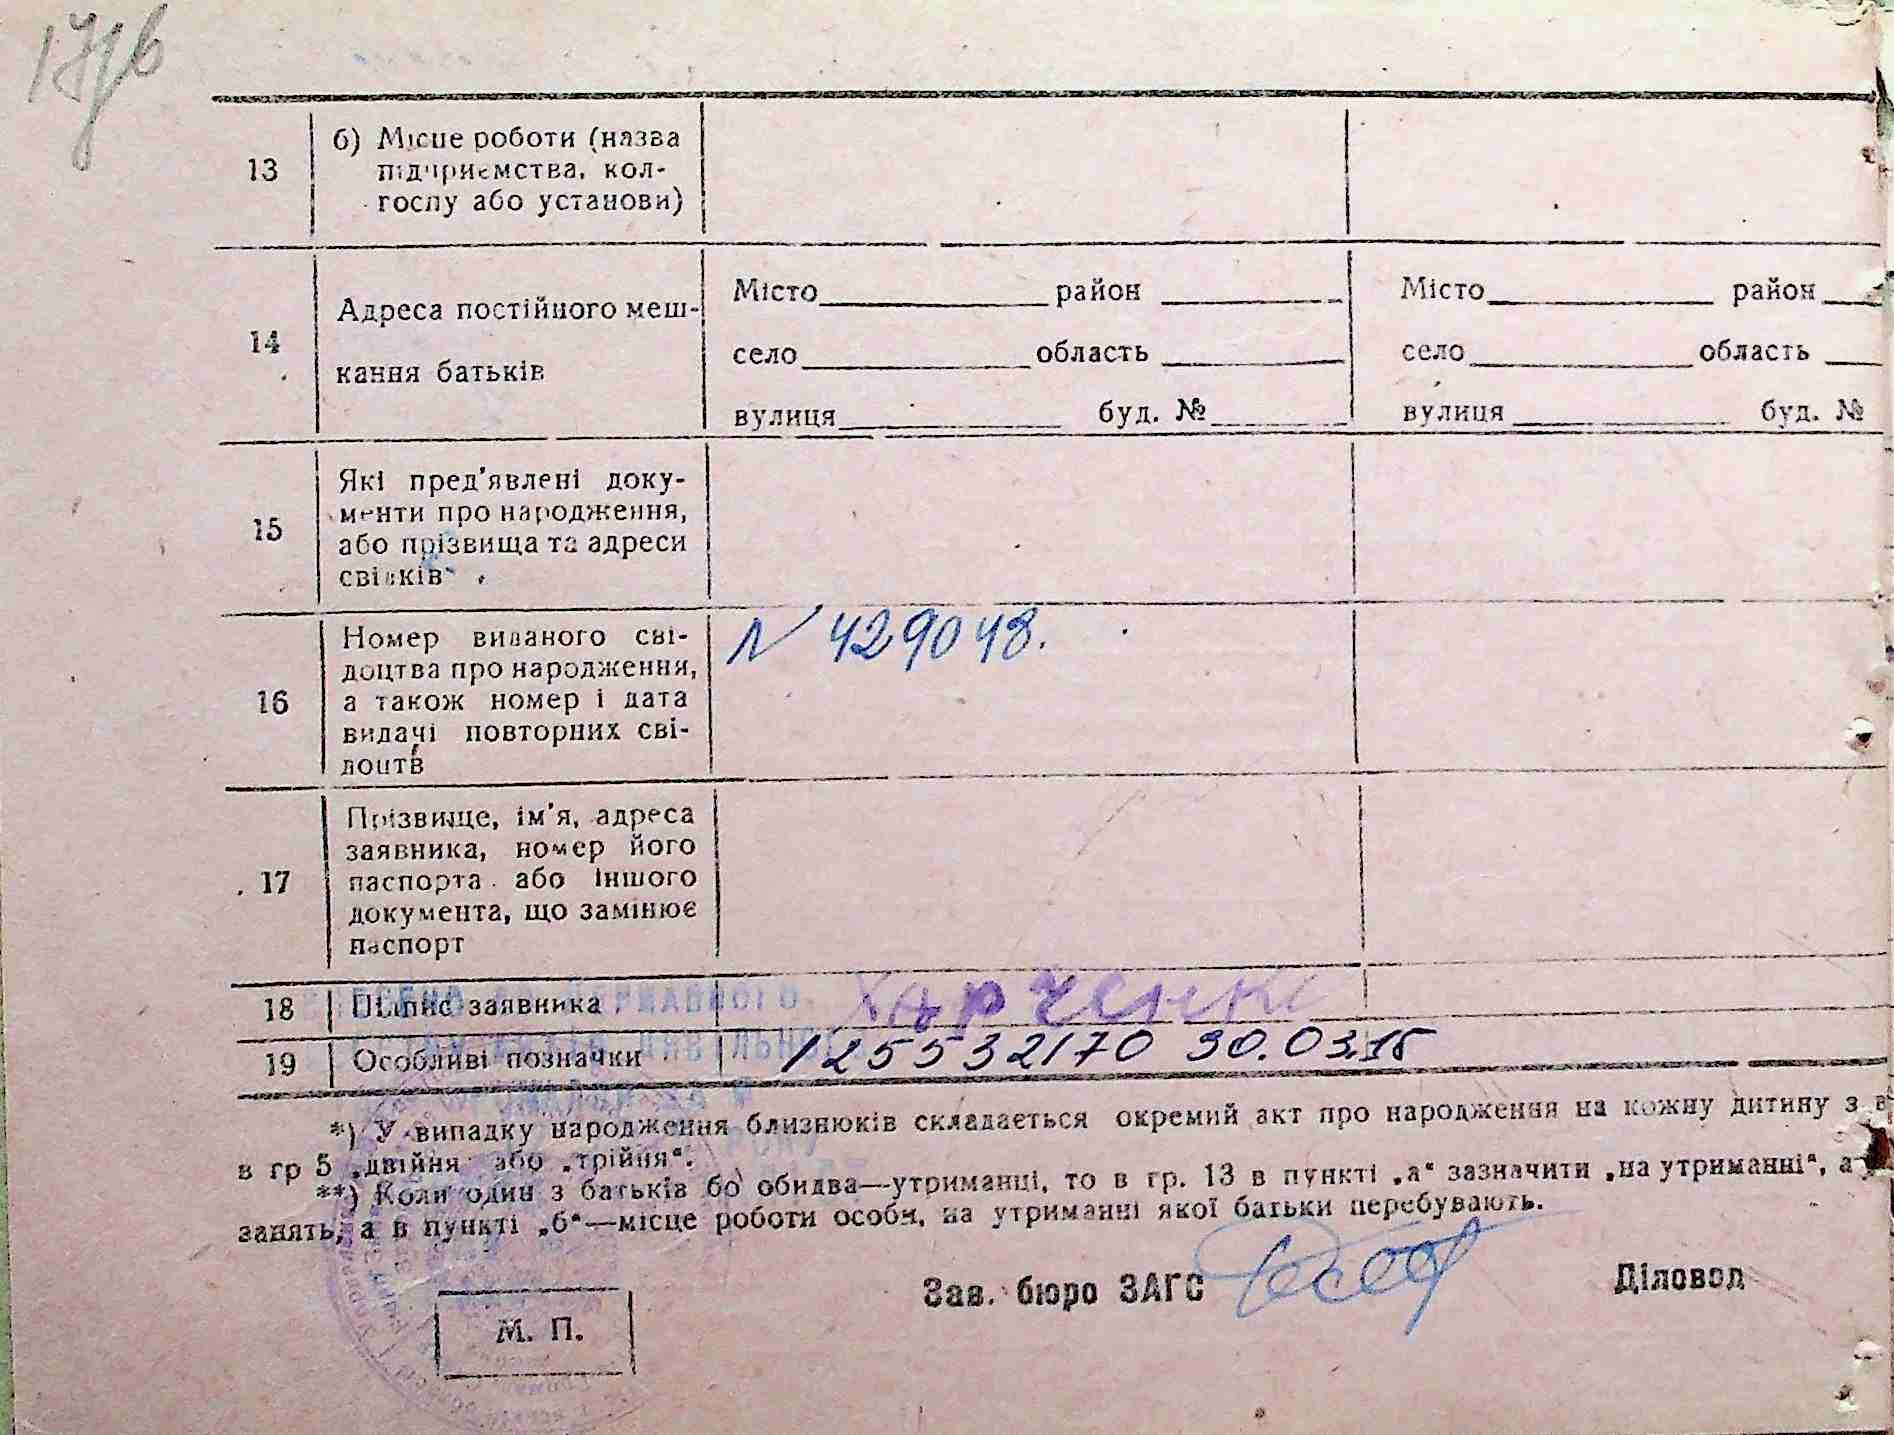 13
б) Місце роботи (назва
підприємства, кол-
госпу або установи)
14
Адреса постійного меш-
кання батьків
Місто район
село область
вулиця буд. №
Місто район
село область
вулиця буд. №
15
Які пред'явлені доку-
менти про народження,
або прізвища та адреси
свідків
16
Номер виданого сві-
доцтва про народження,
а також номер і дата
видачі повторних сві-
доцтв
N 429048.
17
Прізвище, ім'я, адреса
заявника, номер його
паспорта або іншого
документа, що замінює
паспорт
18
Підпис заявника
Харченко
19
Особливі позначки
125532170 30.03.15
*) У випадку народження близнюків складається окремий акт про народження на кожну дитину з в
в гр 5 „двійня" або „трійня".
**) Коли один з батьків бо обидва—утриманці, то в гр. 13 в пункті „а" зазначити „на утриманні", а
занять, а в пункті „б"—місце роботи особи, на утриманні якої батьки перебувають.
Зав. бюро ЗАГС
Діловод
М. П.